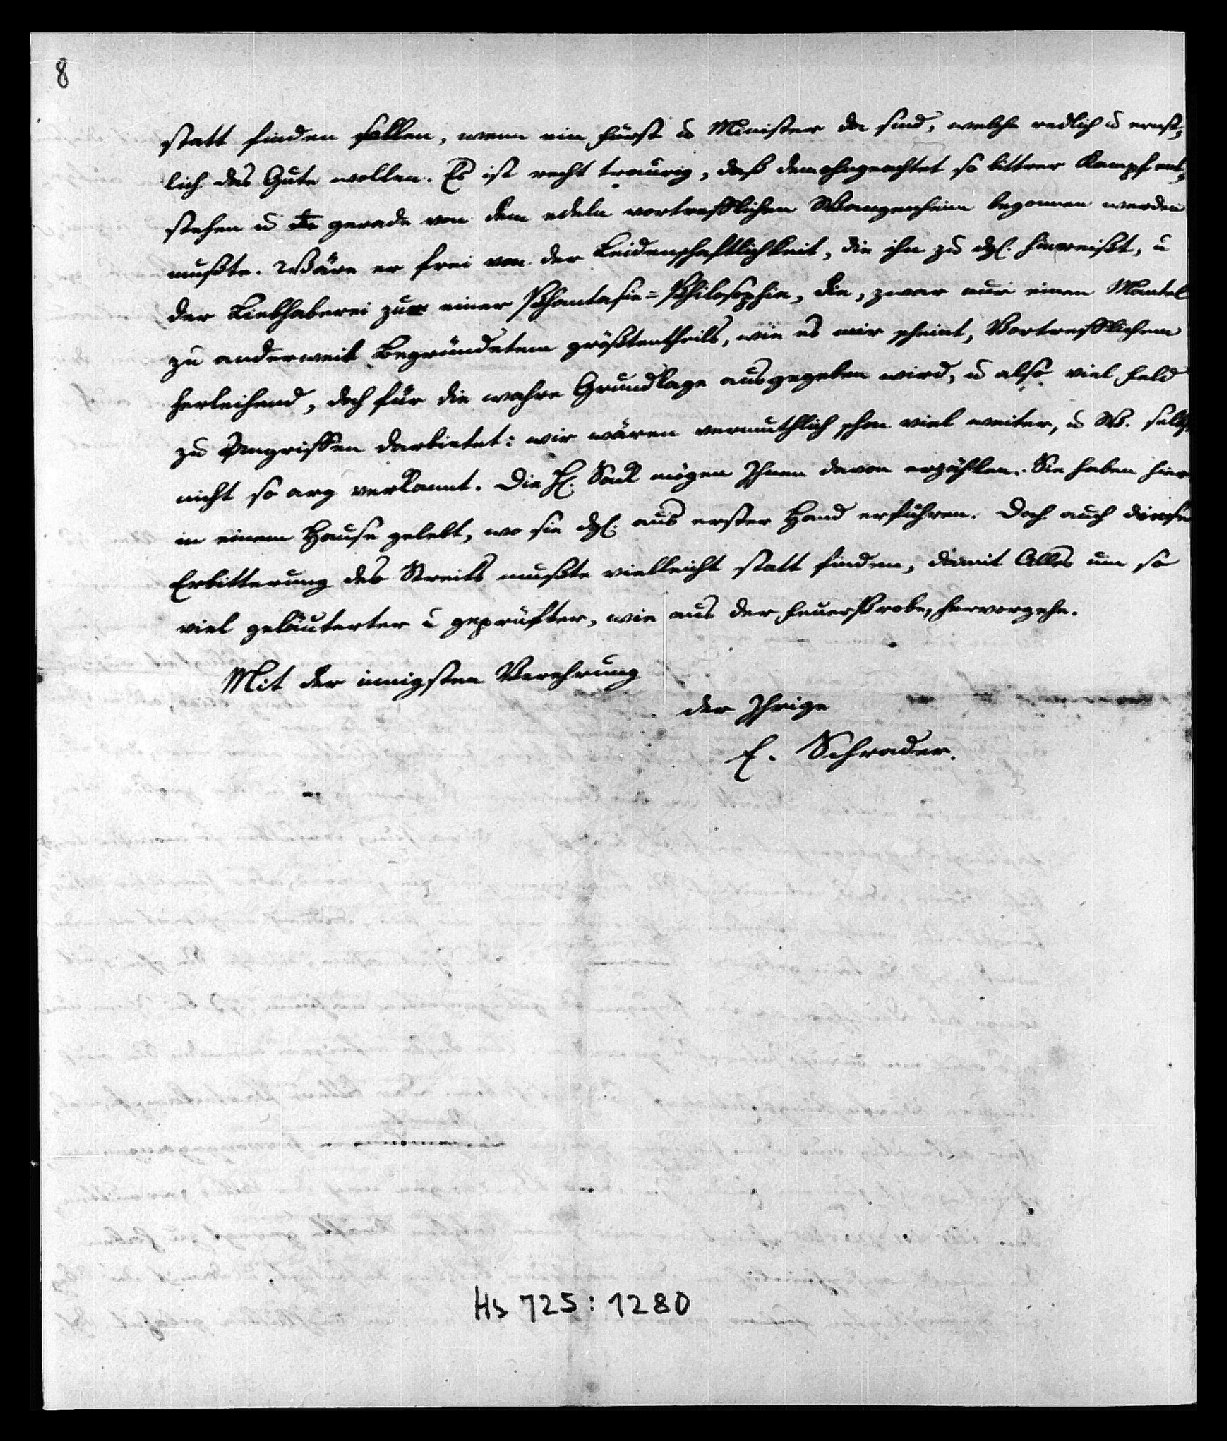 8
statt finden sollen, wenn ein Fürst u Minister da sind, welche redlich u ernst-
lich das Gute wollen. Es ist recht traurig, daß demohngeachtet so bittrer Kampf ent-
stehen u gerade von dem edeln vortrefflichen Wangenheim begonnen werden
mußte. Wäre er frei von der Leidenschaftlichkeit, die ihn zu dgl. hinreißt, u
der Liebhaberei zu einer Phantasie-Philosophie, die, zwar nur einen Mantel
zu anderweit Begründetem größtentheils, wie es mir scheint, Vortrefflichem
herleihend, doch für die wahre Grundlage ausgegeben wird, u also viel Feld
zu Angriffen darbietet: wir wären vermuthlich schon viel weiter, u W. selbst
nicht so arg verkannt. Die H. mögen Ihnen davon erzählen. Sie haben hier
in einem Hause gelebt, wo sie dgl. aus erster Hand erfuhren. Doch auch diese
Erbitterung des Streits mußte vielleicht statt finden, damit Alles um so
viel geläuterter u geprüfter, wie aus der Feuerprobe, hervorgehe.
Mit der innigsten Verehrung
der Ihrige
E. Schrader.
Hs 725: 1280